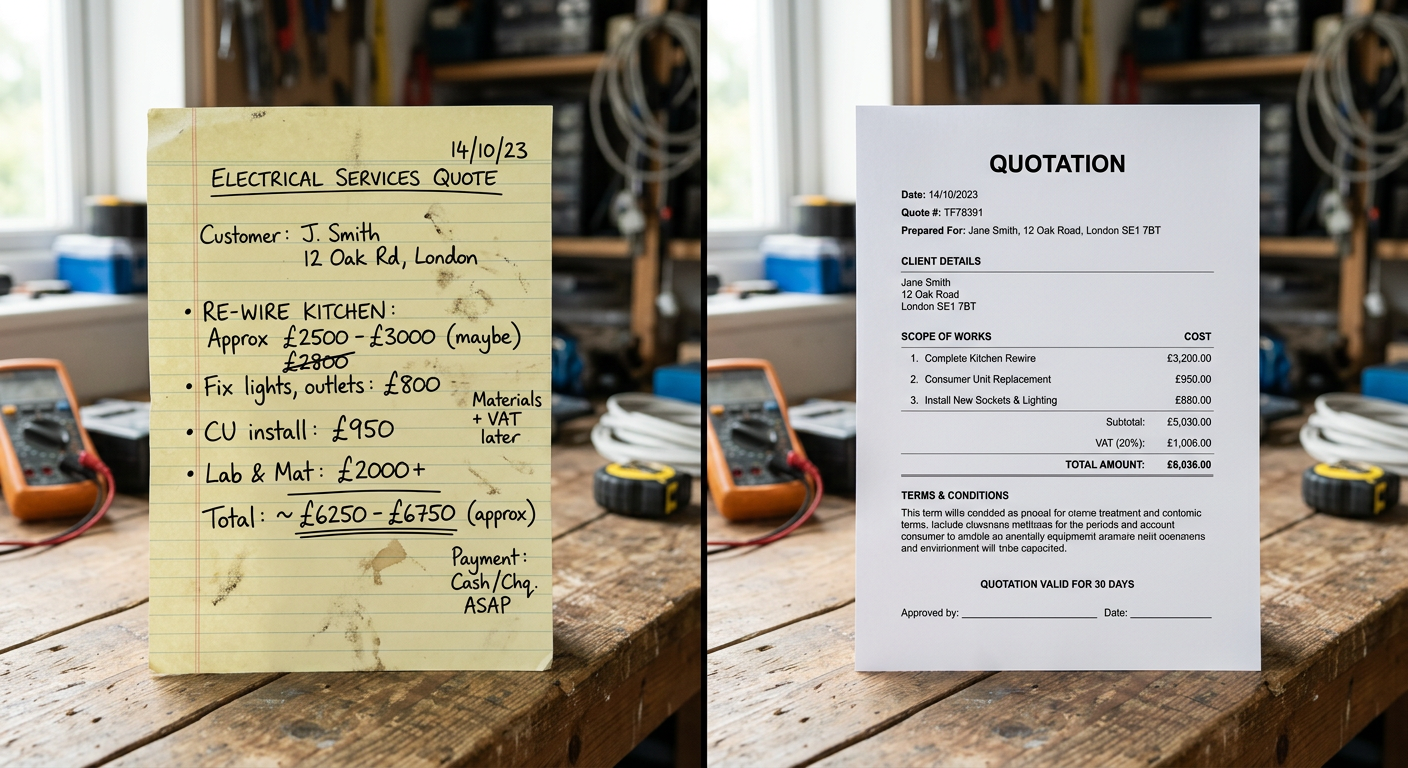 14/10/23
ELECTRICAL SERVICES QUOTE
Customer: J. Smith
12 Oak Rd, London
• RE-WIRE KITCHEN:
Approx £2500 - £3000 (maybe)
£2800
• Fix lights, outlets: £800
Materials
+ VAT
later
• CU install: £950
• Lab & Mat: £2000+
Total: ~ £6250 - £6750 (approx)
Payment:
Cash/Chq.
ASAP
QUOTATION
Date: 14/10/2023
Quote #: TF78391
Prepared For: Jane Smith, 12 Oak Road, London SE1 7BT
CLIENT DETAILS
Jane Smith
12 Oak Road
London SE1 7BT
SCOPE OF WORKS COST
1. Complete Kitchen Rewire £3,200.00
2. Consumer Unit Replacement £950.00
3. Install New Sockets & Lighting £880.00
Subtotal: £5,030.00
VAT (20%): £1,006.00
TOTAL AMOUNT: £6,036.00
TERMS & CONDITIONS
This term wills condded as pnooal for treatment and contomic
terms. laclude cluwsnans for the periods and account
consumer to amdole ao anentally equipment aramare neiit ocenanens
and envirionment will tnbe capacited.
QUOTATION VALID FOR 30 DAYS
Approved by: Date: